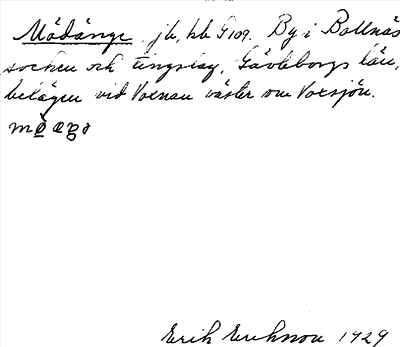 Mödånge jb, kb G 109. By i Bollnäs
socken och tingslag, Gävleborgs län,
belägen vid Voxnan väster om Voxsjön.
Erik Eriksson 1929